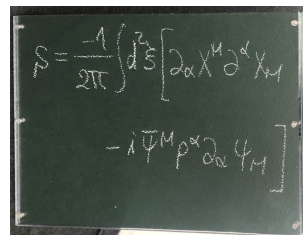 S = -1/2π ∫d²ξ [∂αX^M ∂^αX_M
- i Ψ̄^M ρ^α ∂αΨ_M]